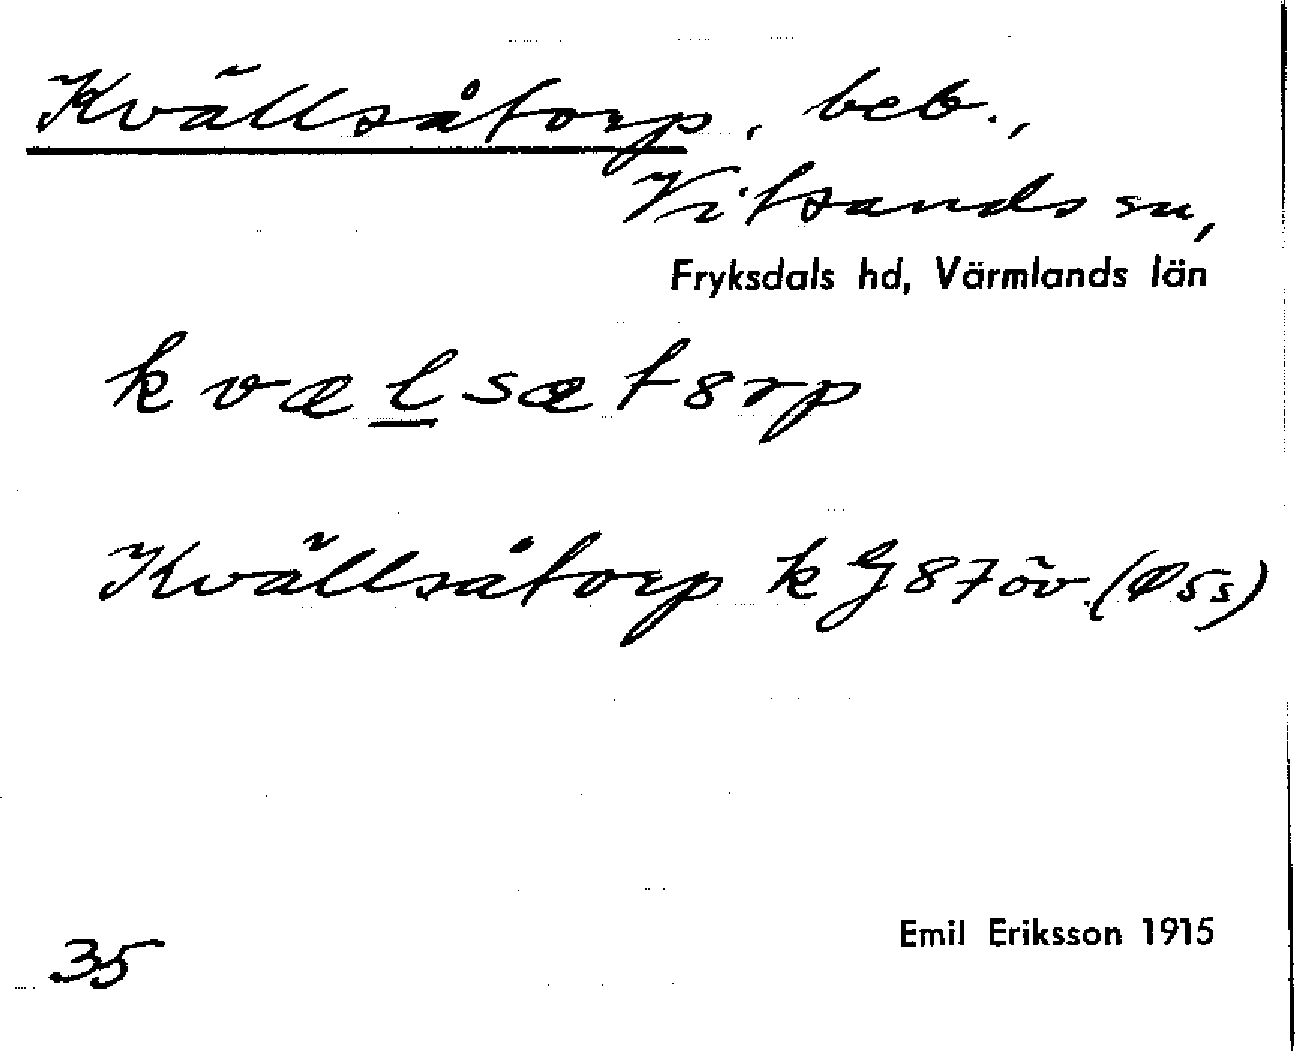 Kvällsåtorp, beb.,
Vitsands sn,
Fryksdals hd, Värmlands län
kvælsætorp
Kvällsåtorp k G 87 öv.
Emil Eriksson 1915
35